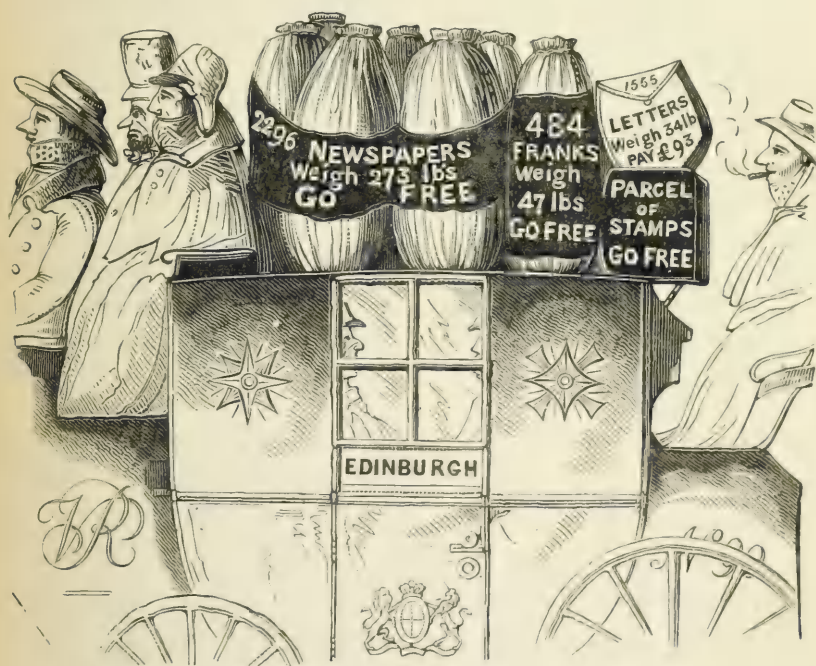 2296 NEWSPAPERS
Weigh 273 lbs
GO FREE
484
FRANKS
Weigh
47 lbs
GO FREE
1565
LETTERS
Weigh 34lb
PAY £93
PARCEL
OF
STAMPS
GO FREE
EDINBURGH
VR